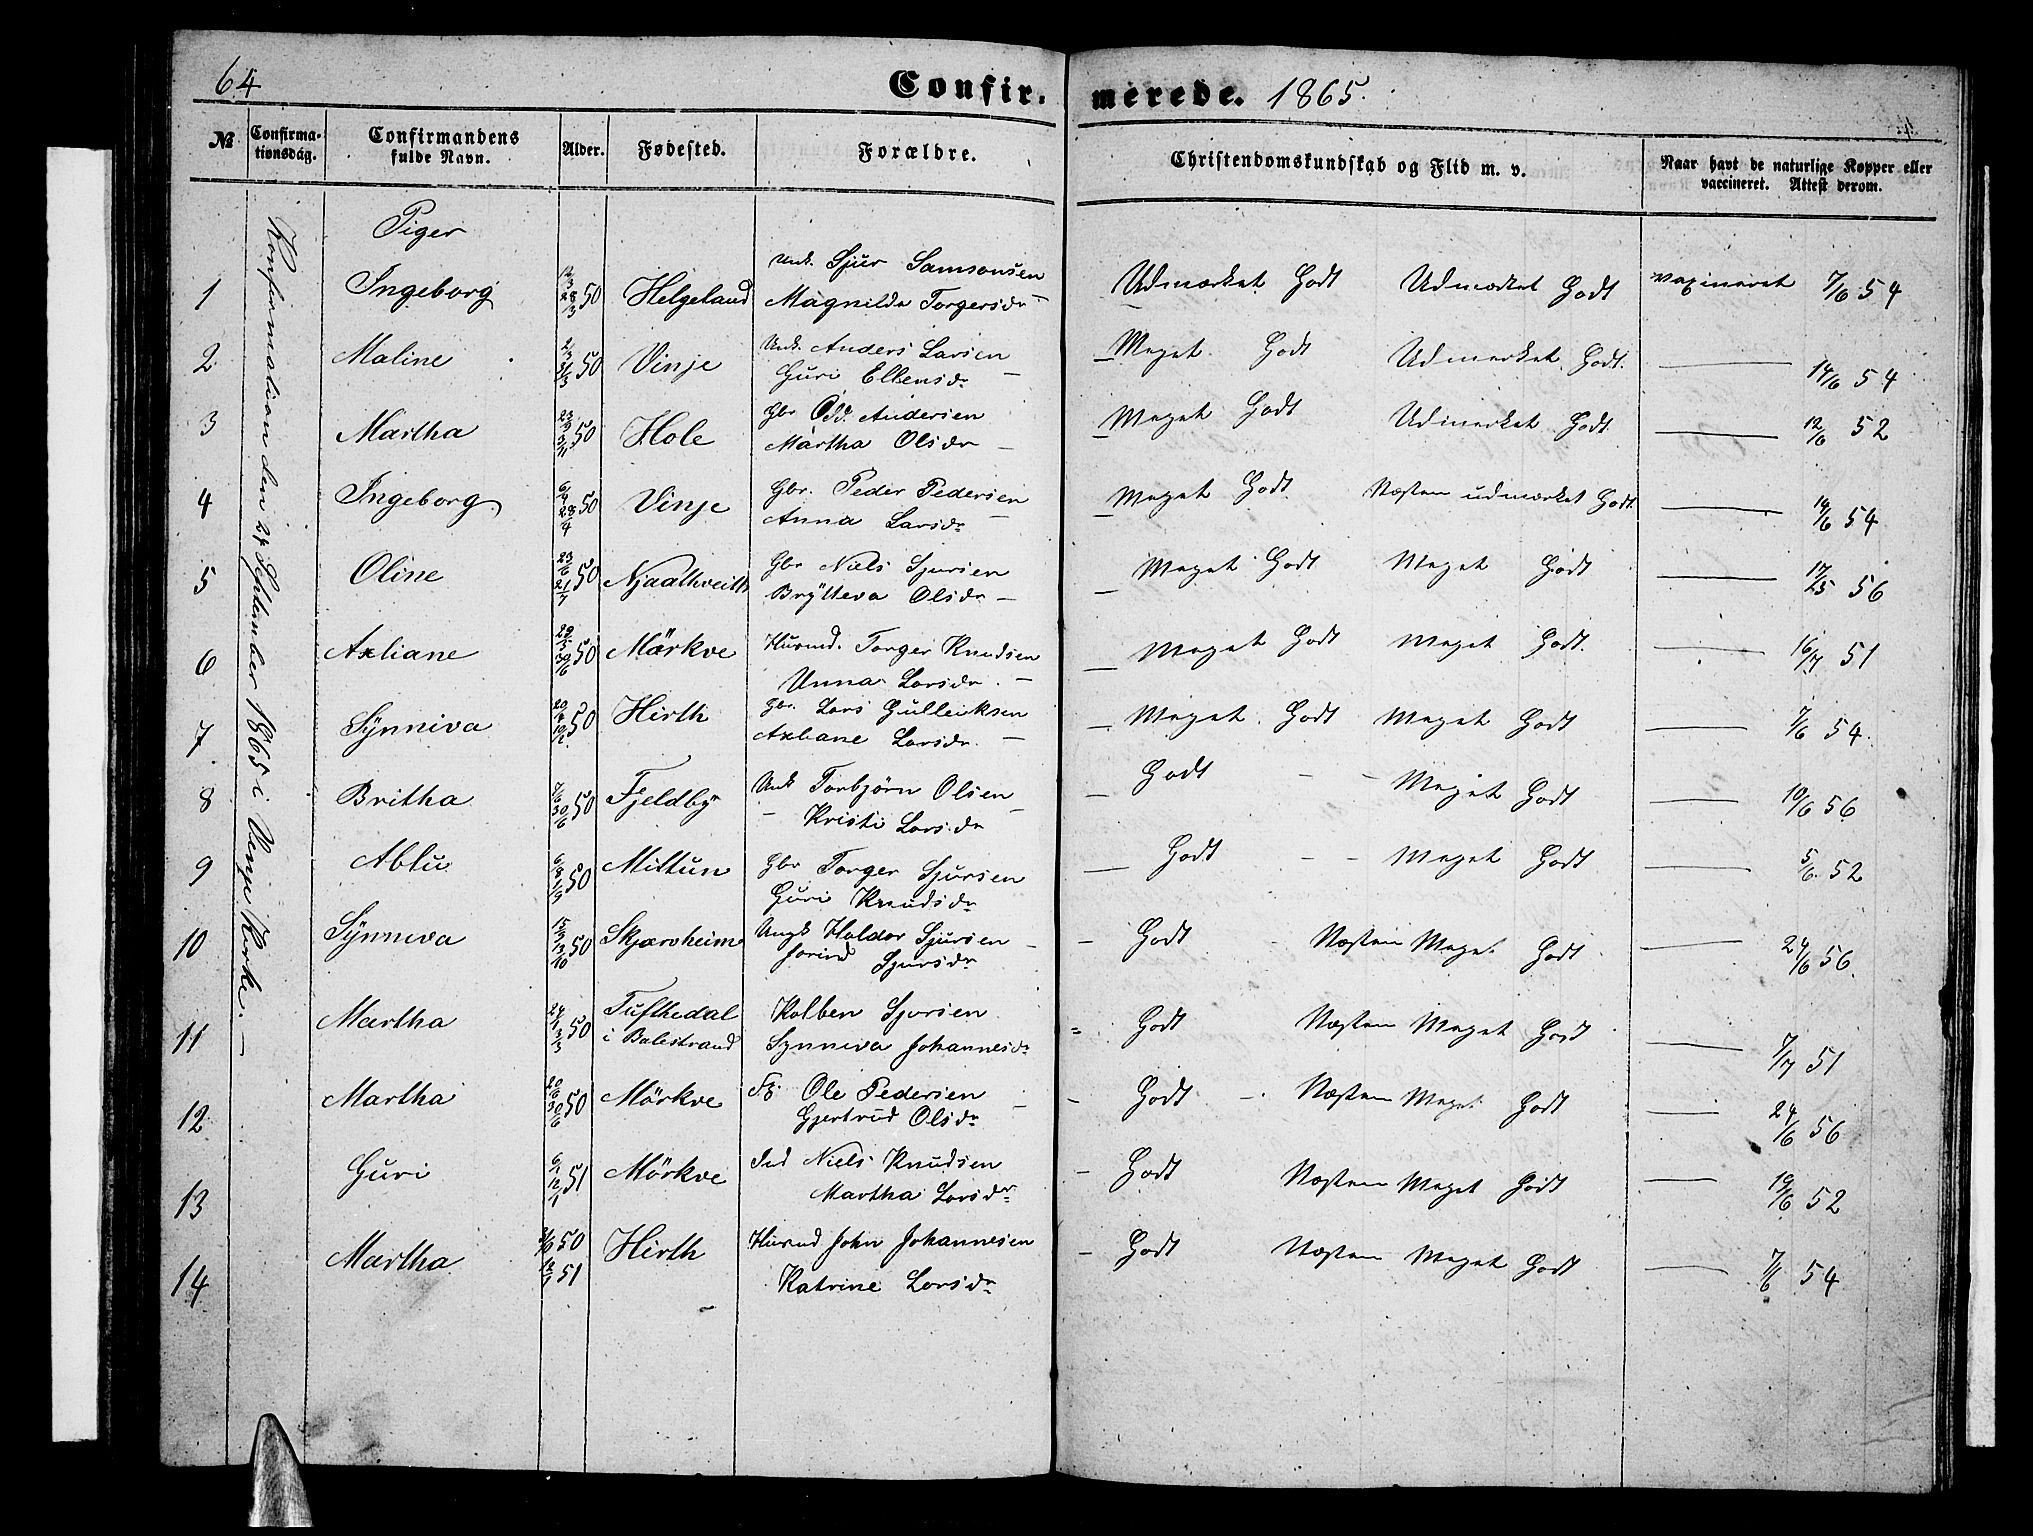 64
Confir.
merede. 1865.
№
Confirma-
tionsdag.
Confirmandens
fulde Navn.
Alder.
Fødested.
Forældre.
Christendomskundskab og Flid m. v.
Naar havt de naturlige Kopper eller
vaccineret. Attest derom.
Konfirmation den 24 September 1865 i Vinje Kirke. —
Piger
1 Ingeborg 12/3 28/3 50 Helgeland
Unk. Sjur Samsonsen
Magnilda Torgersdr —
Udmærket Godt Udmærket Godt vaxineret 7/6 54
2 Maline 2/3 31/3 50 Vinje
Unk. Anders Larsen
Guri Ellensdr —
— Meget Godt Udmærket Godt. — 14/6 54
3 Martha 50 Hole
Gbr Odd Andersen
Martha Olsdr —
— Meget Godt Udmærket Godt. — 12/6 52
4 Ingeborg 6/4 28/4 50 Vinje
Gbr. Peder Pedersen
Anna Larsdr —
— Meget Godt Næsten udmærket Godt. — 14/6 54
5 Oline 23/6 21/7 50 Njaathveith
Gbr Niels Sjursen
Brytteva Olsdr —
— Meget Godt Meget Godt — 56
6 Axliane 50 Mørkve
Husmd. Torger Knudsen
Unna Larsdr. —
— Meget Godt Meget Godt. — 16/7 51
7 Synniva 50 Hirth
Gbr. Lars Gulleiksen
Axliane Larsdr. —
— Meget Godt Meget Godt — 7/6 54.
8 Britha 7/6 30/6 50 Fjeldby
Unk Torbjørn Olsen —
— Kristi Larsdr
— Godt — — Meget Godt — 10/6 56
9 Ablu 6/8 1/9 50 Mittun
Gbr Torger Sjursen
Guri Knudsdr
— Godt — — Meget Godt — 5/6. 52
10 Synneva 15/9 13/10 50 Skjærvheim
Ungk Haldor Sjursen —
Jorind Sjursdr
— Godt - Næsten Meget Godt — 24/6 56.
11 Martha 24/1 3/3 50 Tufthedal
i Balestrand
Kolben Sjursen
Synneva Johannesdr
= Godt Næsten Meget Godt — 7/7 51
12 Martha 20/6 30/6 50 Mørkve
Ole Pedersen —
Gjertrud Olsdr
— Godt —. Næsten Meget Godt — 24/6 56
13 Guri 6/1 12/1 51 Mørkve
Ind Niels Knudsen
Martha Larsdr
— Godt Næsten Meget Godt — 19/6 52
14 Martha 50
51 Hirth
Husmd John Johannesen
Katrine Larsdr
— Godt Næsten Meget Godt — 7/6 54.